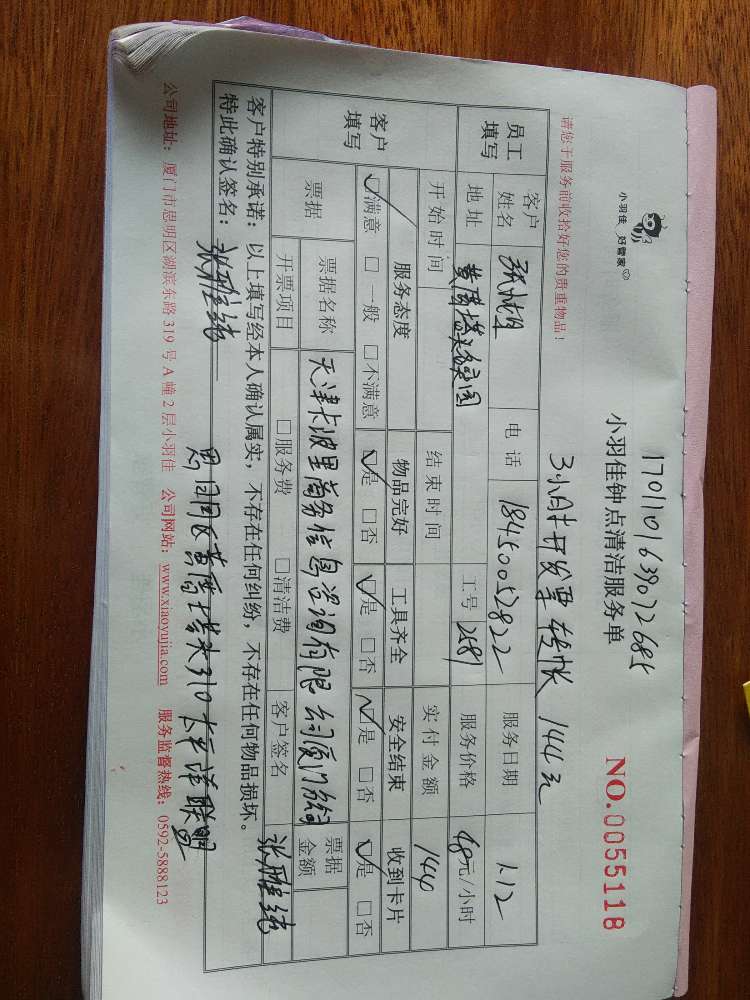 小羽佳 好管家
1701101639072685
小羽佳钟点清洁服务单
NO.0055118
请您于服务前收拾好您的贵重物品!
3小时开发票转帐 144元
员工填写
客户姓名
电话 18450052822
服务日期 1.12
地址 黄厝塔头
工号 2581
服务价格 48元/小时
开始时间
结束时间
实付金额 144
客户填写
服务态度 物品完好 工具齐全 安全结束 收到卡片
☑满意 □一般 □不满意 ☑是 □否 ☑是 □否 ☑是 □否 ☑是 □否
票据
票据名称 天津卡波里商务信息咨询有限公司厦门分公司
票据金额
开票项目 □服务费 □清洁费
客户签名 张雅
客户特别承诺:以上填写经本人确认属实,不存在任何纠纷,不存在任何物品损坏。
特此确认签名: 张雅
思明区黄厝塔头310 太平洋联盟
公司地址:厦门市思明区湖滨东路319号A幢2层小羽佳 公司网站:www.xiaoyujia.com 服务监督热线:0592-5888123